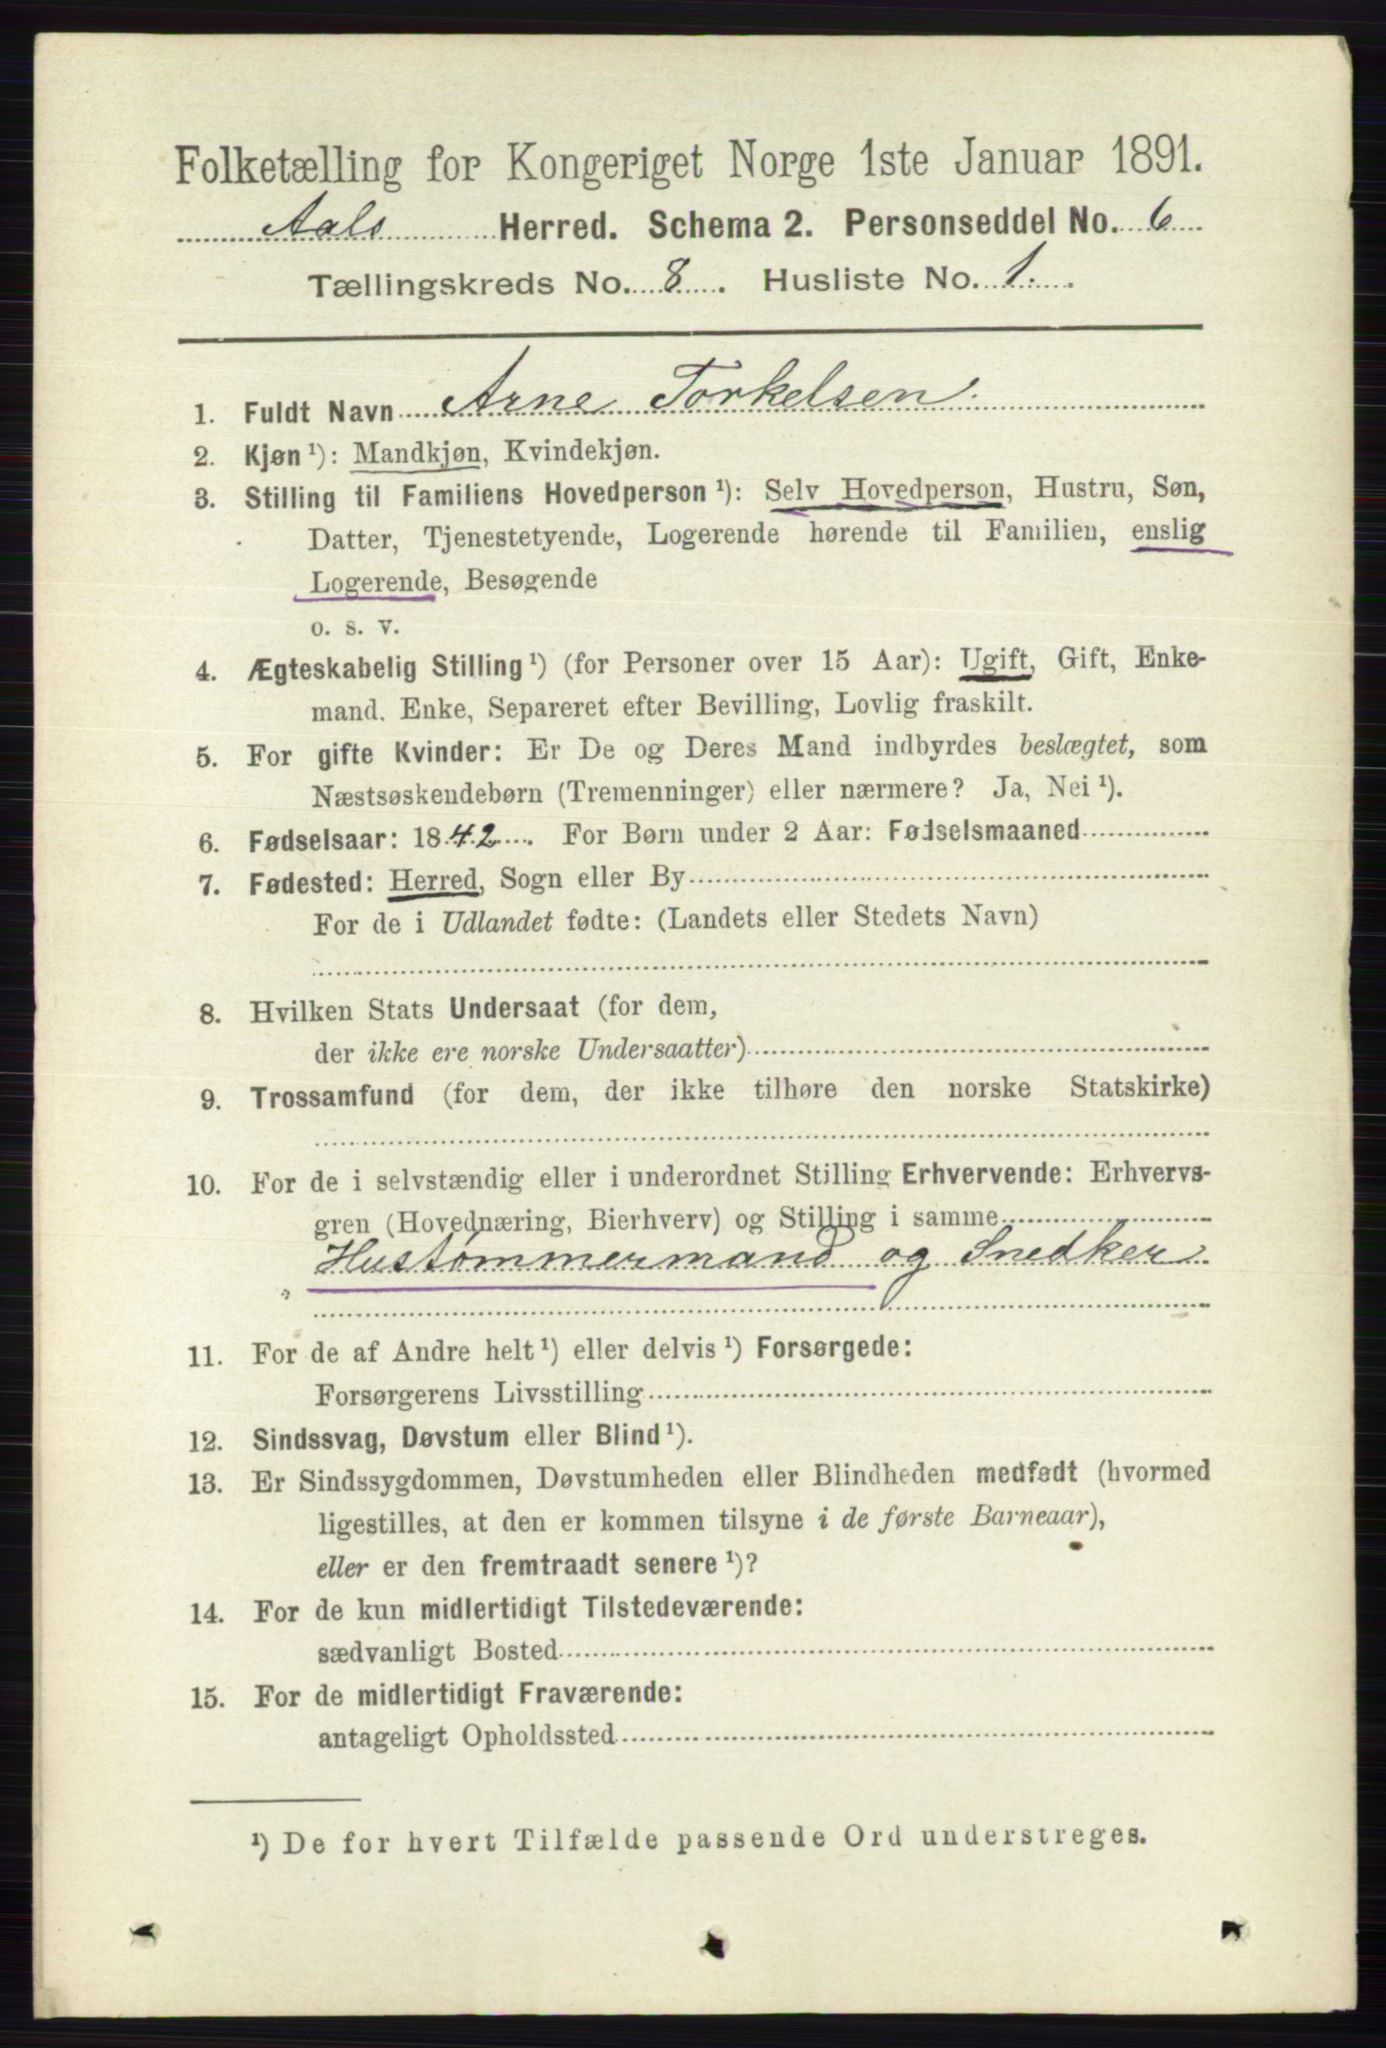 Folketælling for Kongeriget Norge 1ste Januar 1891.
Aals Herred. Schema 2. Personseddel No. 6
Tællingskreds No. 8. Husliste No. 1.
1. Fuldt Navn Arne Torkelsen.
2. Kjøn ¹): Mandkjøn, Kvindekjøn.
3. Stilling til Familiens Hovedperson ¹): Selv Hovedperson, Hustru, Søn,
Datter, Tjenestetyende, Logerende hørende til Familien, enslig
Logerende, Besøgende
o. s. v.
4. Ægteskabelig Stilling ¹) (for Personer over 15 Aar): Ugift, Gift, Enke-
mand. Enke, Separeret efter Bevilling, Lovlig fraskilt.
5. For gifte Kvinder: Er De og Deres Mand indbyrdes beslægtet, som
Næstsøskendebørn (Tremenninger) eller nærmere? Ja, Nei ¹).
6. Fødselsaar: 1842. For Børn under 2 Aar: Fødselsmaaned
7. Fødested: Herred, Sogn eller By
For de i Udlandet fødte: (Landets eller Stedets Navn)
8. Hvilken Stats Undersaat (for dem,
der ikke ere norske Undersaatter)
9. Trossamfund (for dem, der ikke tilhøre den norske Statskirke)
10. For de i selvstændig eller i underordnet Stilling Erhvervende: Erhvervs-
gren (Hovednæring, Bierhverv) og Stilling i samme
Hustømmermand og Snedker
11. For de af Andre helt ¹) eller delvis ¹) Forsørgede:
Forsørgerens Livsstilling
12. Sindssvag, Døvstum eller Blind ¹).
13. Er Sindssygdommen, Døvstumheden eller Blindheden medfødt (hvormed
ligestilles, at den er kommen tilsyne i de første Barneaar),
eller er den fremtraadt senere ¹)?
14. For de kun midlertidigt Tilstedeværende:
sædvanligt Bosted
15. For de midlertidigt Fraværende:
antageligt Opholdssted
¹) De for hvert Tilfælde passende Ord understreges.